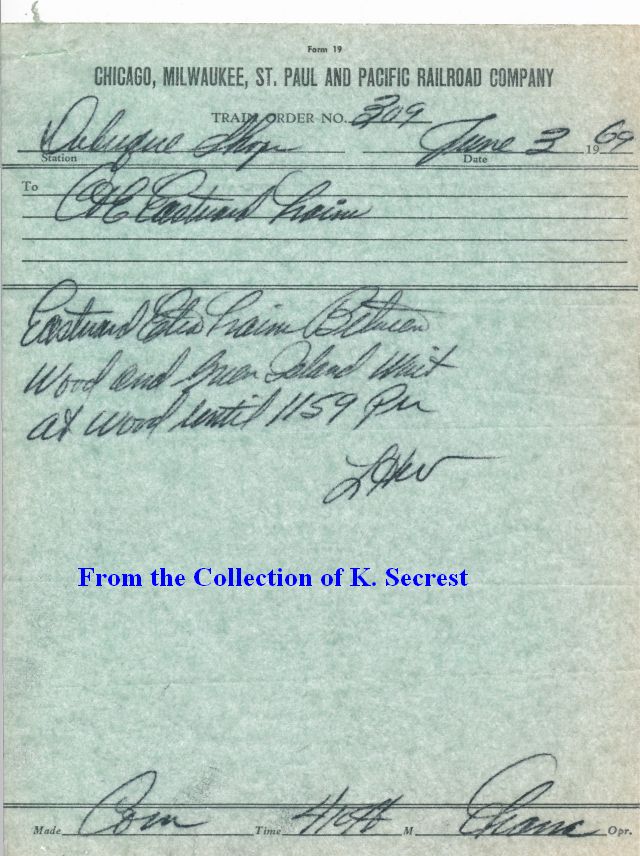 Form 19
CHICAGO, MILWAUKEE, ST. PAUL AND PACIFIC RAILROAD COMPANY
TRAIN ORDER NO. 309
Dubuque Shop June 3 1969
Station Date
To C&E Eastward Trains
Eastward Extra Trains Between
Wood and Green Island Wait
at Wood until 1159 Pm
From the Collection of K. Secrest
Made Com Time M Opr.